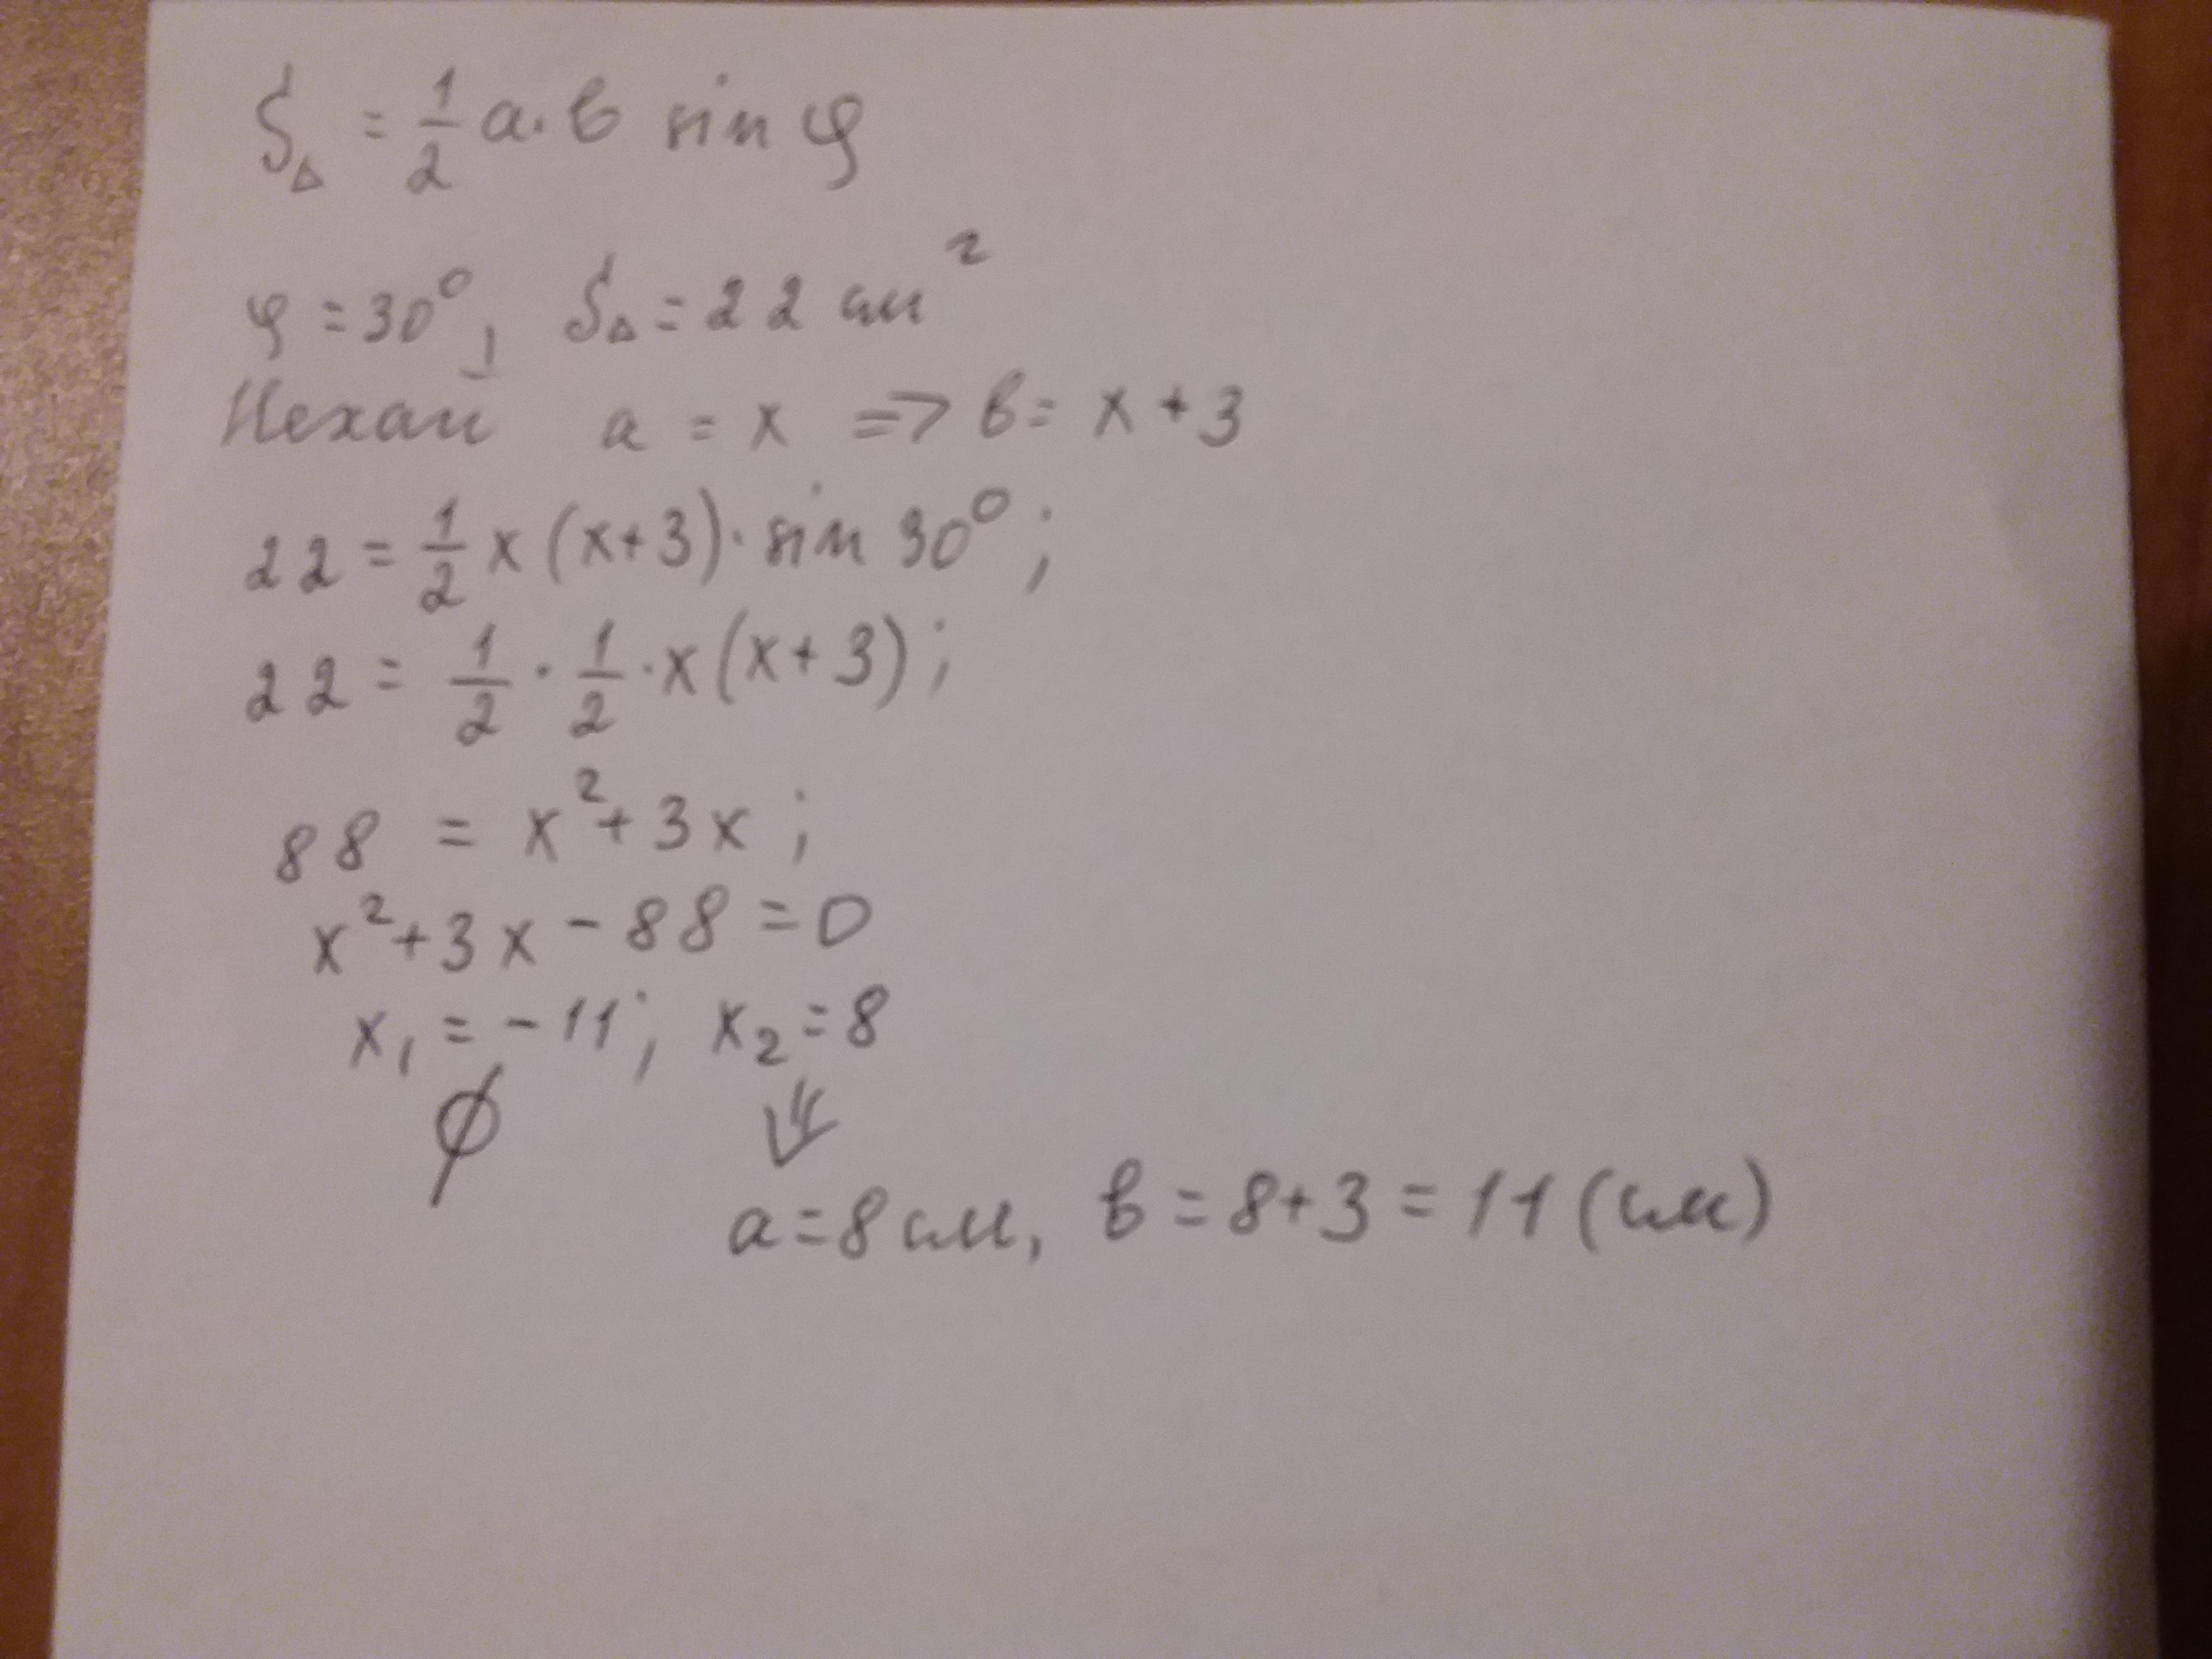 S△ = 1/2 a·в sin φ
φ = 30°, S△ = 22 см²
Нехай a = x => в = x + 3
22 = 1/2 x (x+3)· sin 30°;
22 = 1/2 · 1/2 · x (x+3);
88 = x² + 3x;
x² + 3x - 88 = 0
x₁ = -11; x₂ = 8
∅ ⇓
a = 8 см, в = 8+3 = 11 (см)